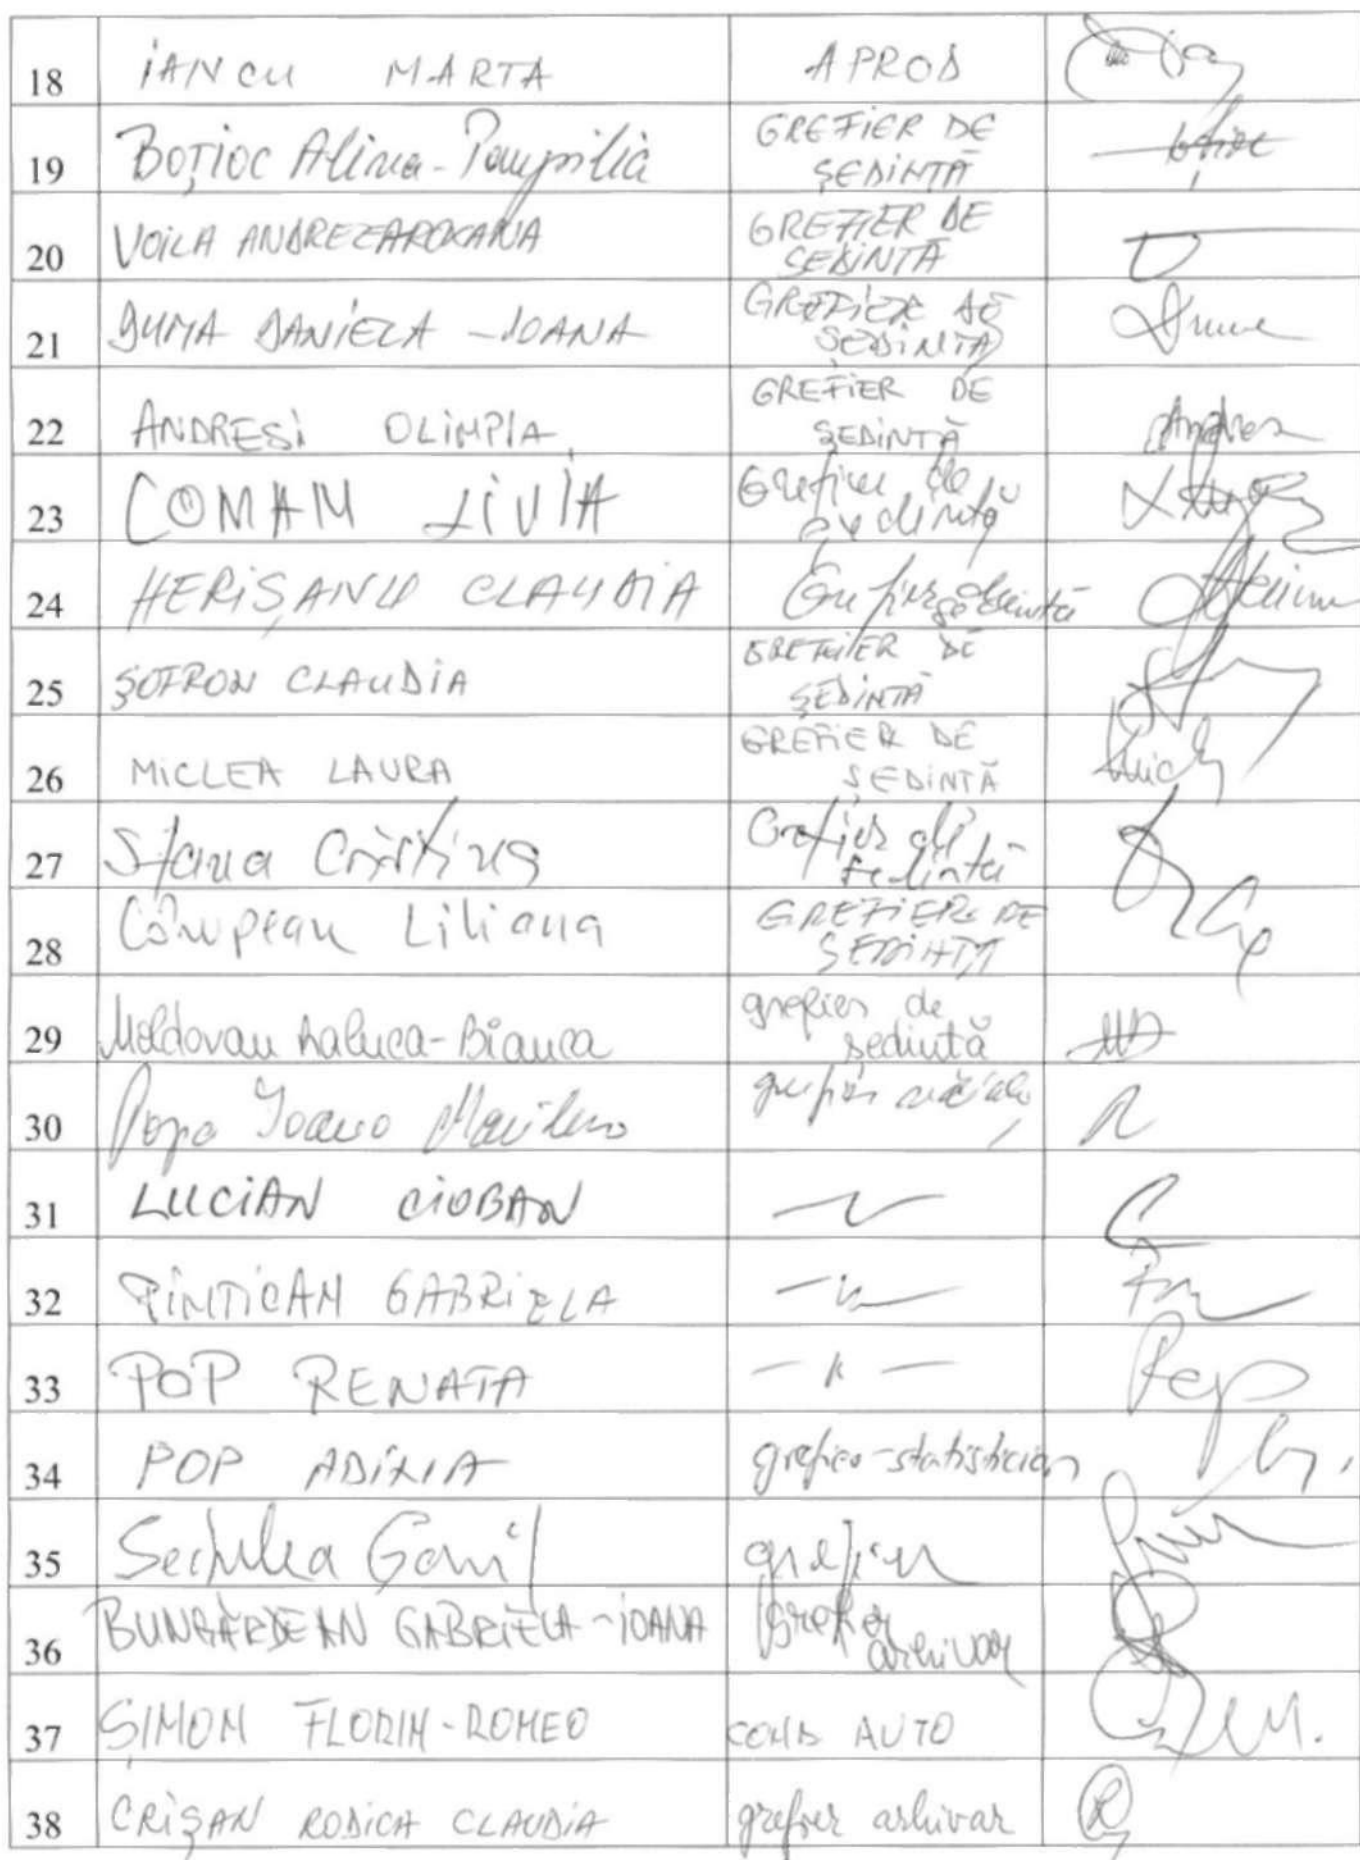 18 IANCU MARTA APROD
19 BOȚIOC Alina-Pompilia GREFIER DE
ȘEDINȚĂ
20 VOILA ANDREEA ROXANA GREFIER DE
SEDINTĂ
21 DUMA DANIELA - IOANA GREFIER DE
ȘEDINȚĂ
22 ANDRESI OLIMPIA GREFIER DE
ȘEDINTĂ
23 COMAN LIVIA Grefier de
ședință
24 HERIȘANU CLAUDIA Grefier ședință
25 ȘOFRON CLAUDIA GREFIER DE
ȘEDINTĂ
26 MICLEA LAURA GREFIER DE
ȘEDINTĂ
27 Stana Cristina Grefier de
sedintă
28 Câmpean Liliana GREFIER DE
ȘEDINȚĂ
29 Moldovan Raluca-Bianca grefier de
ședință
30 Popa Ioana Marilena grefier
31 LUCIAN CIOBAN
32 PINTICAN GABRIELA
33 POP RENATA
34 POP ADINA grefier-statistician
35 Gavril grefier
36 BUNGĂRDEAN GABRIELA-IOANA Grefier
arhivar
37 ȘIMON FLORIN-ROMEO COND AUTO
38 CRIȘAN RODICA CLAUDIA grefier arhivar